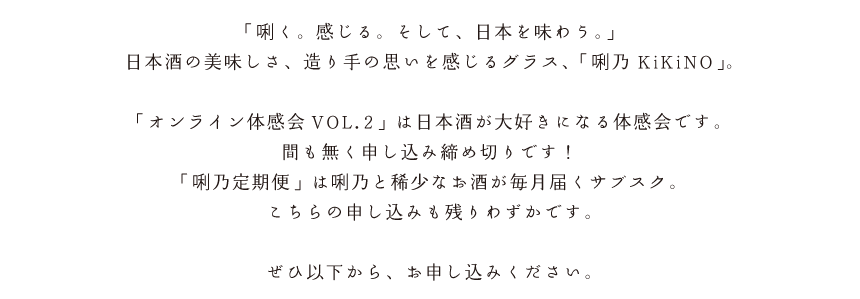 「唎く。感じる。そして、日本を味わう。」
日本酒の美味しさ、造り手の思いを感じるグラス、「唎乃 KiKiNO」。
「オンライン体感会 VOL.2」は日本酒が大好きになる体感会です。
間も無く申し込み締め切りです！
「唎乃定期便」は唎乃と稀少なお酒が毎月届くサブスク。
こちらの申し込みも残りわずかです。
ぜひ以下から、お申し込みください。